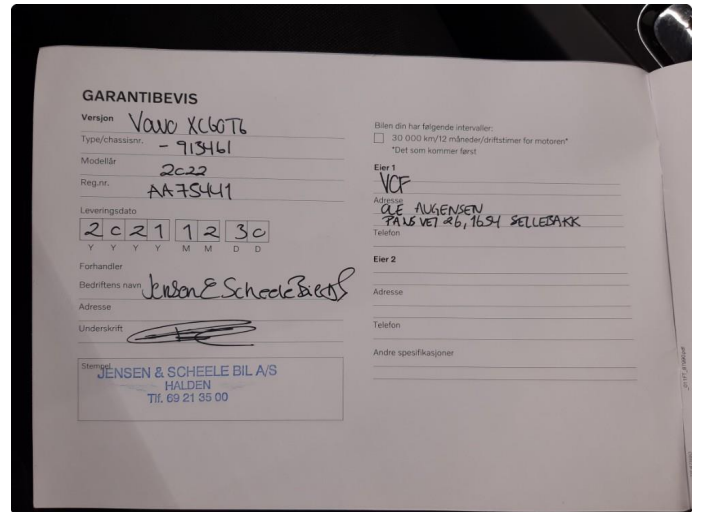 GARANTIBEVIS
Versjon Volvo XC60T6
Type/chassisnr. - 913461
Modellår 2022
Reg.nr. AA75441
Leveringsdato
2021 12 30
Y Y Y Y M M D D
Forhandler
Bedriftens navn Jensen & Scheele Bil A/S
Adresse
Underskrift
Stempel
JENSEN & SCHEELE BIL A/S
HALDEN
Tlf. 69 21 35 00
Bilen din har følgende intervaller:
30 000 km/12 måneder/driftstimer for motoren*
*Det som kommer først
Eier 1
VCF
Adresse
OLE AUGENSEN
PANS VEI 26, 1654 SELLEBAKK
Telefon
Eier 2
Adresse
Telefon
Andre spesifikasjoner